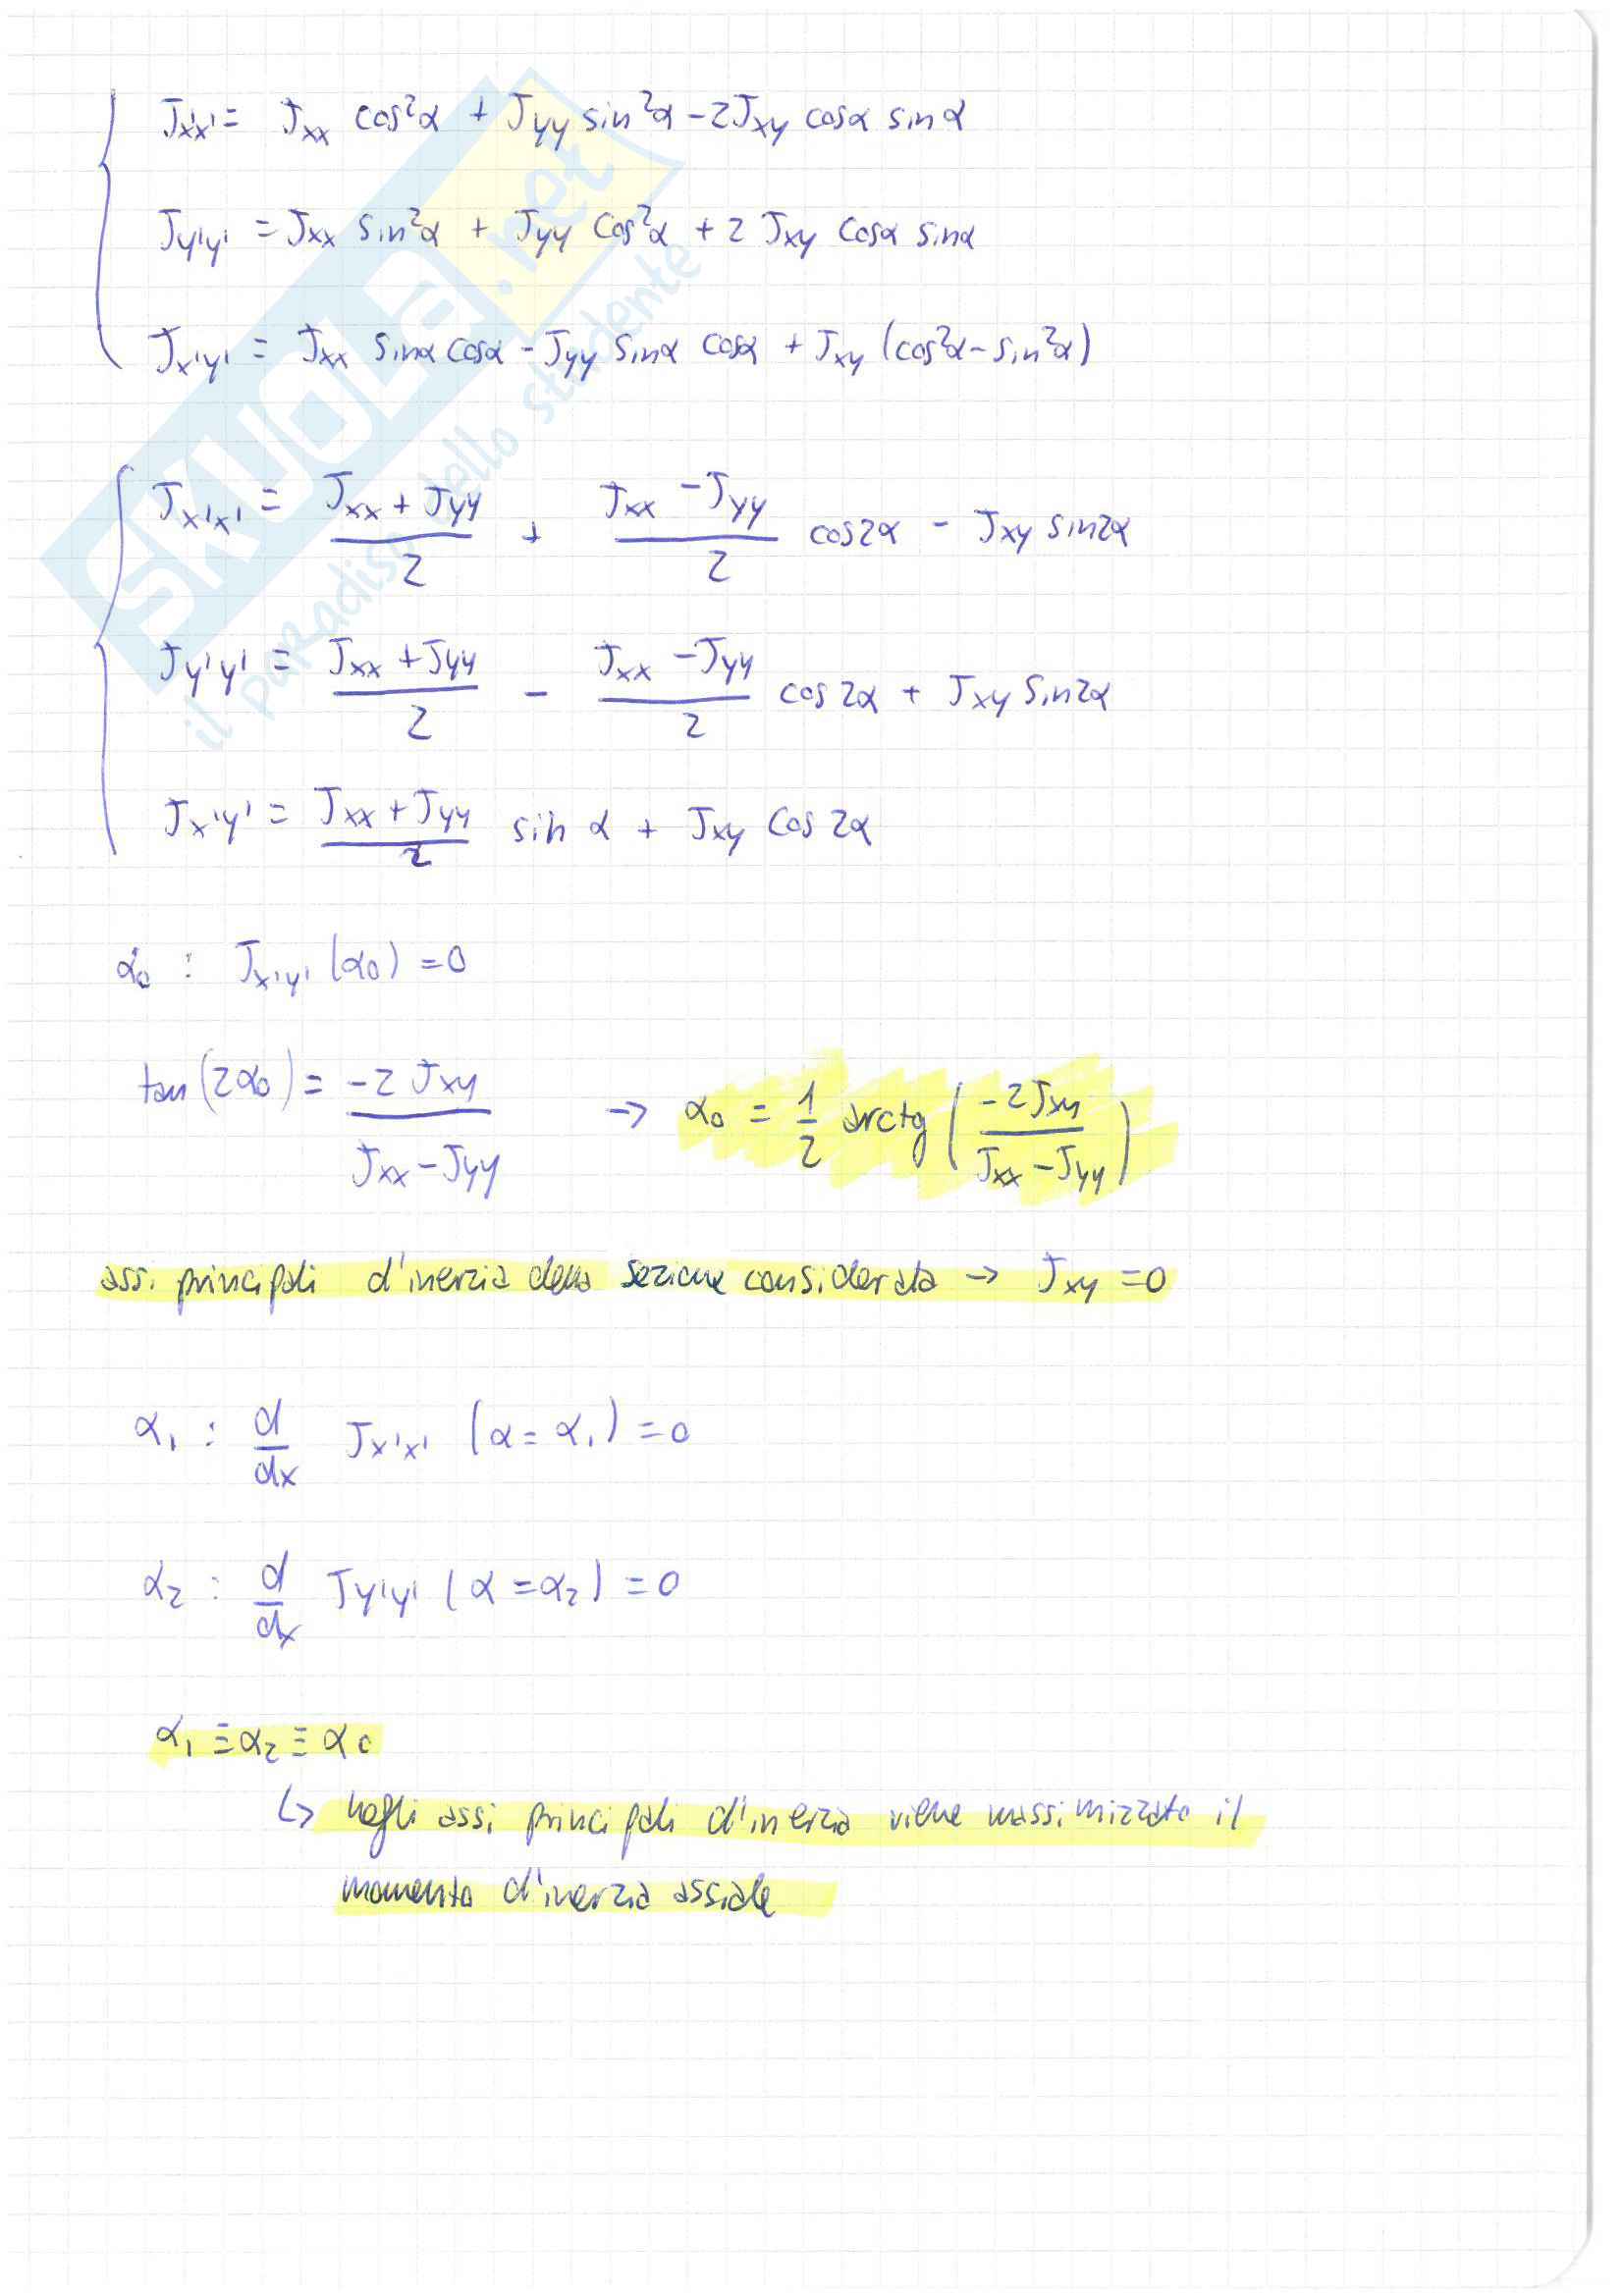 Jx'x' = Jxx cos²α + Jyy sin²α - 2Jxy cosα sinα
Jy'y' = Jxx sin²α + Jyy cos²α + 2 Jxy cosα sinα
Jx'y' = Jxx sinα cosα - Jyy sinα cosα + Jxy (cos²α - sin²α)
Jx'x' = (Jxx + Jyy)/2 + (Jxx - Jyy)/2 cos2α - Jxy sin2α
Jy'y' = (Jxx + Jyy)/2 - (Jxx - Jyy)/2 cos2α + Jxy sin2α
Jx'y' = (Jxx + Jyy)/2 sin α + Jxy cos 2α
α₀ : Jx'y' (α₀) = 0
tan(2α₀) = -2 Jxy / (Jxx - Jyy) → α₀ = 1/2 arctg (-2Jxy / (Jxx - Jyy))
assi principali d'inerzia della sezione considerata → Jxy = 0
α₁ : d/dx Jx'x' (α = α₁) = 0
α₂ : d/dx Jy'y' (α = α₂) = 0
α₁ ≡ α₂ ≡ α₀
↳ negli assi principali d'inerzia viene massimizzato il
momento d'inerzia assiale
SKUOLA.net
il paradiso dello studente